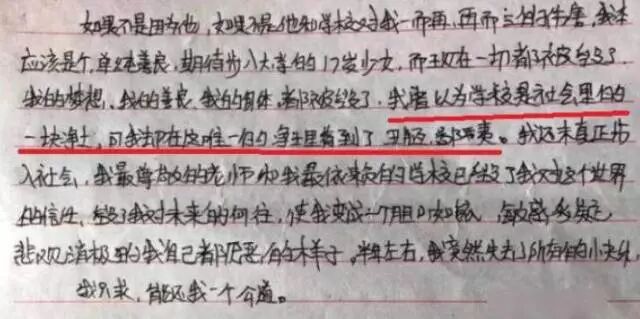 如果不是因为他，如果不是他和学校对我一而再，再而三的伤害，我本
应该是个单纯善良，期待步入大学的17岁少女，而现在一切都被毁了
我的梦想，我的善良，我的身体，都被毁了，我曾以为学校是社会里的
一块净土，可我却在这唯一的净土里看到了丑陋，邪恶。我还未真正步
入社会，我最尊敬的老师和我最依赖的学校已经毁了我对这个世界
的信任，毁了我对未来的向往，使我变成一个用
悲观消极的我自己都厌恶的样子。左右，我突然失去了所有的小
我只求，能还我一个公道。